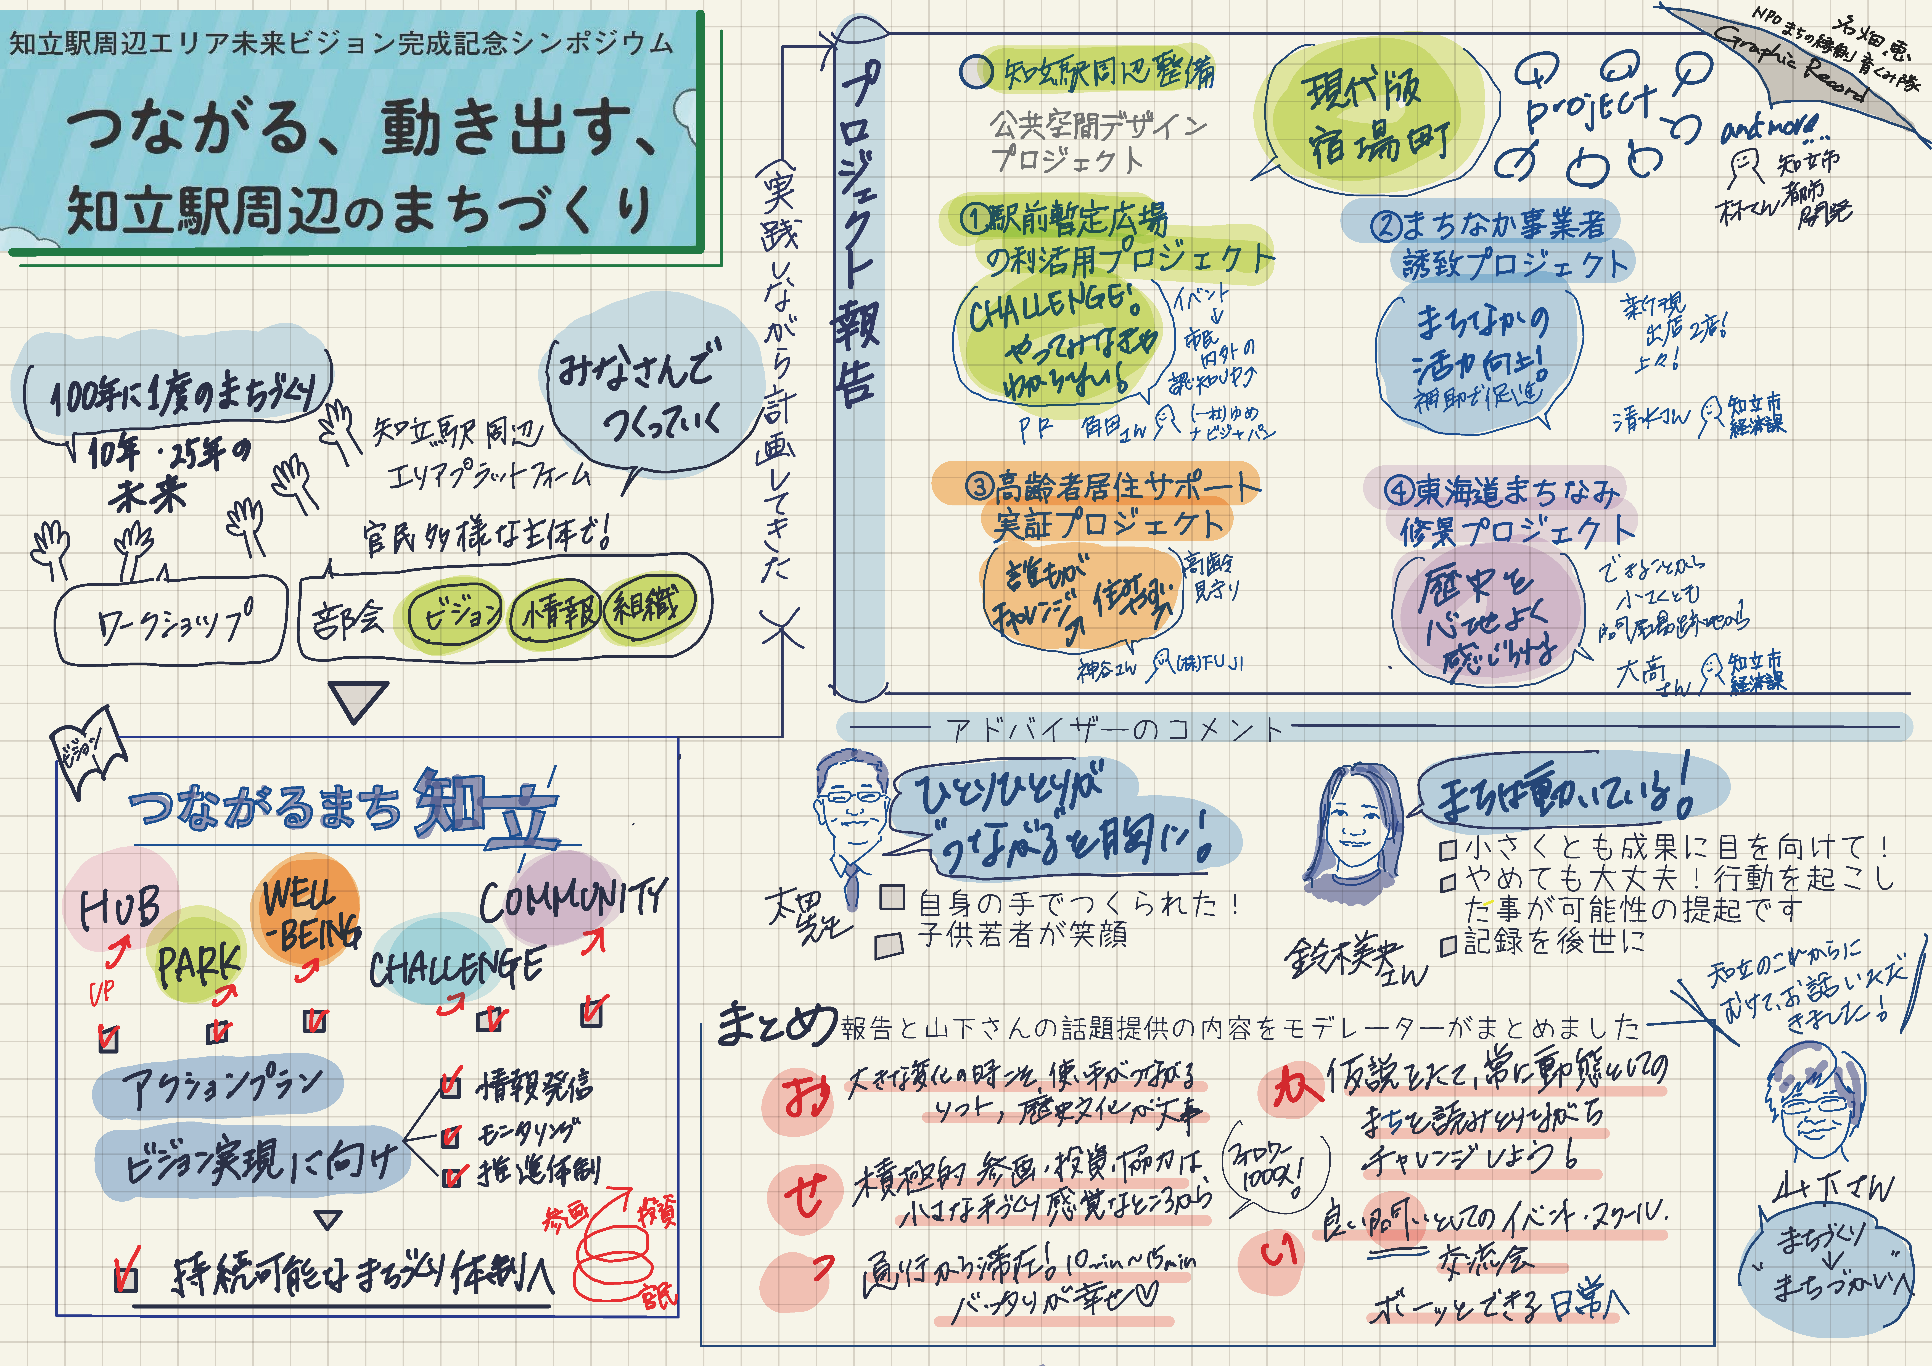 知立駅周辺エリア未来ビジョン完成記念シンポジウム
つながる、動き出す、
知立駅周辺のまちづくり
100年に1度のまちづくり
10年・25年の
未来
みなさんで
つくっていく
知立駅周辺
エリアプラットフォーム
官民多様な主体で!
ワークショップ
部会
ビジョン
情報
組織
実践しながら計画してきた
ビジョン
つながるまち 知立
HUB
PARK
WELL
-BEING
CHALLENGE
COMMUNITY
UP
アクションプラン
ビジョン実現に向け
情報発信
モニタリング
推進体制
持続可能なまちづくり体制へ
参画
投資
官民
プロジェクト報告
知立駅周辺整備
公共空間デザイン
プロジェクト
現代版
宿場町
project
and more..
林さん
知立市
都市
開発
NPO まちの縁側 育くみ隊
名畑 恵
Graphic Record
①駅前暫定広場
の利活用プロジェクト
CHALLENGE!
やってみなきゃ
わからない!
イベント
↓
市民
内外の
認知UP↗
PR 角田さん
(一社)ゆめ
ナビジャパン
②まちなか事業者
誘致プロジェクト
まちなかの
活力向上!
補助で促進
新規
出店2店!
上々!
清水さん
知立市
経済課
③高齢者居住サポート
実証プロジェクト
誰もが
チャレンジ
高齢
見守り
神谷さん
(株)FUJI
④東海道まちなみ
修景プロジェクト
歴史を
心地よく
感じられる
できることから
小さくとも
問屋場跡地から
大高さん
知立市
経済課
アドバイザーのコメント
ひとりひとりが
"つながる"を胸に!
太田先生
自身の手でつくられた!
子供若者が笑顔
まちは動いている!
小さくとも成果に目を向けて!
やめても大丈夫!行動を起こし
た事が可能性の提起です
記録を後世に
鈴木美央さん
まとめ
報告と山下さんの話題提供の内容をモデレーターがまとめました
お
大きな変化の時こそ、使い手がつながる
ソフト, 歴史文化が大事
せ
積極的 参画・投資・協力は、
小さな手づくり感覚なところから
フォロワー
1000人!
っ
通行から滞在! 10min~15min
バッタリが幸せ♡
か
仮説をたて、常に動態としての
まちを読みとりながら
チャレンジしよう!
い
良い問いとしてのイベント・スクール.
交流会
ボーッとできる日常へ
知立のこれからに
むけて、お話いただ
きました!
山下さん
まちづくり
↓
まちづかいへ